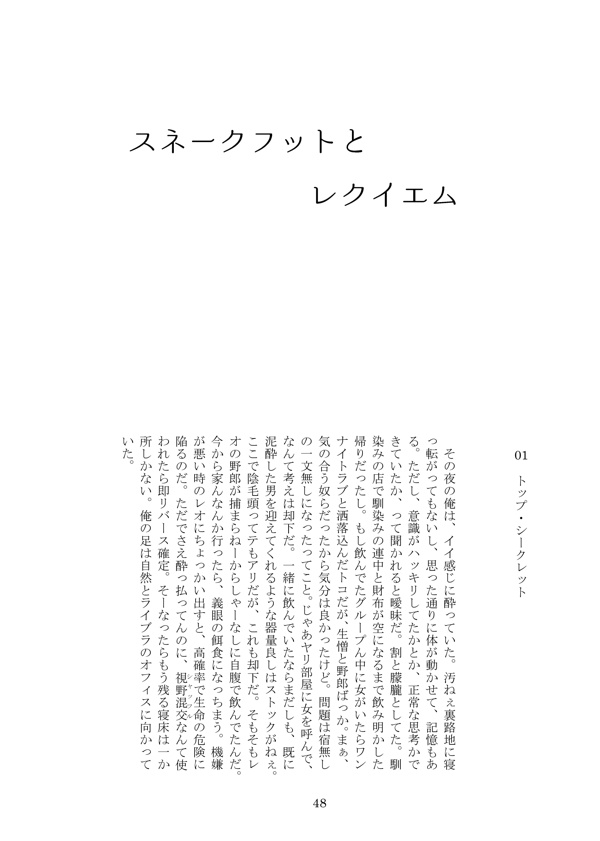 スネークフットと
レクイエム
01　トップ・シークレット
　その夜の俺は、イイ感じに酔っていた。汚ねぇ裏路地に寝
っ転がってもないし、思った通りに体が動かせて、記憶もあ
る。ただし、意識がハッキリしてたかとか、正常な思考がで
きていたか、って聞かれると曖昧だ。割と朦朧としてた。馴
染みの店で馴染みの連中と財布が空になるまで飲み明かした
帰りだったし。もし飲んでたグループん中に女がいたらワン
ナイトラブと洒落込んだトコだが、生憎と野郎ばっか。まぁ、
気の合う奴らだったから気分は良かったけど。問題は宿無し
の一文無しになったってこと。じゃあヤリ部屋に女を呼んで、
なんて考えは却下だ。一緒に飲んでいたならまだしも、既に
泥酔した男を迎えてくれるような器量良しはストックがねぇ。
ここで陰毛頭ってテもアリだが、これも却下だ。そもそもレ
オの野郎が捕まらねーからしゃーなしに自腹で飲んでたんだ。
今から家んなんか行ったら、義眼の餌食になっちまう。機嫌
が悪い時のレオにちょっかい出すと、高確率で生命の危険に
陥るのだ。ただでさえ酔っ払ってんのに、視野混交なんて使
シャッフル
われたら即リバース確定。そーなったらもう残る寝床は一か
所しかない。俺の足は自然とライブラのオフィスに向かって
いた。
48